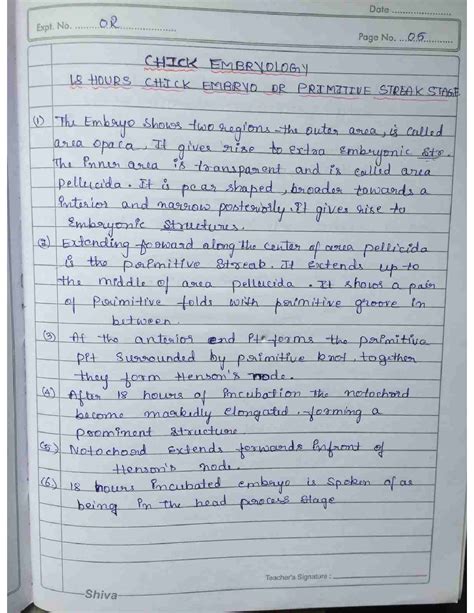 Date
Expt. No. 02
Page No. 05
CHICK EMBRYOLOGY
18 HOURS CHICK EMBRYO OR PRIMITIVE STREAK STAGE
(1) The Embryo shows two regions the outer area, is called
area opaca, It gives rise to extra Embryonic Str.
The inner area is transparent and is called area
pellucida. It is pear shaped, broader towards a
interior and narrow posteriorly. It gives rise to
Embryonic structures.
(2) Extending forward along the center of area pellicida
is the primitive streak. It extends up to
the middle of area pellucida. It shows a pair
of Pirimitive folds with primitive groove in
between.
(3) At the anterior end It forms the primitiva
pit surrounded by primitive knot, together
they form Henson's node.
(4) After 18 hours of Incubation the notochord
become markedly elongated, forming a
prominent structure
(5) Notochord Extends forwards infront of
Henson's node.
(6) 18 hours incubated embryo is spoken of as
being in the head process stage
Teacher's Signature :
Shiva